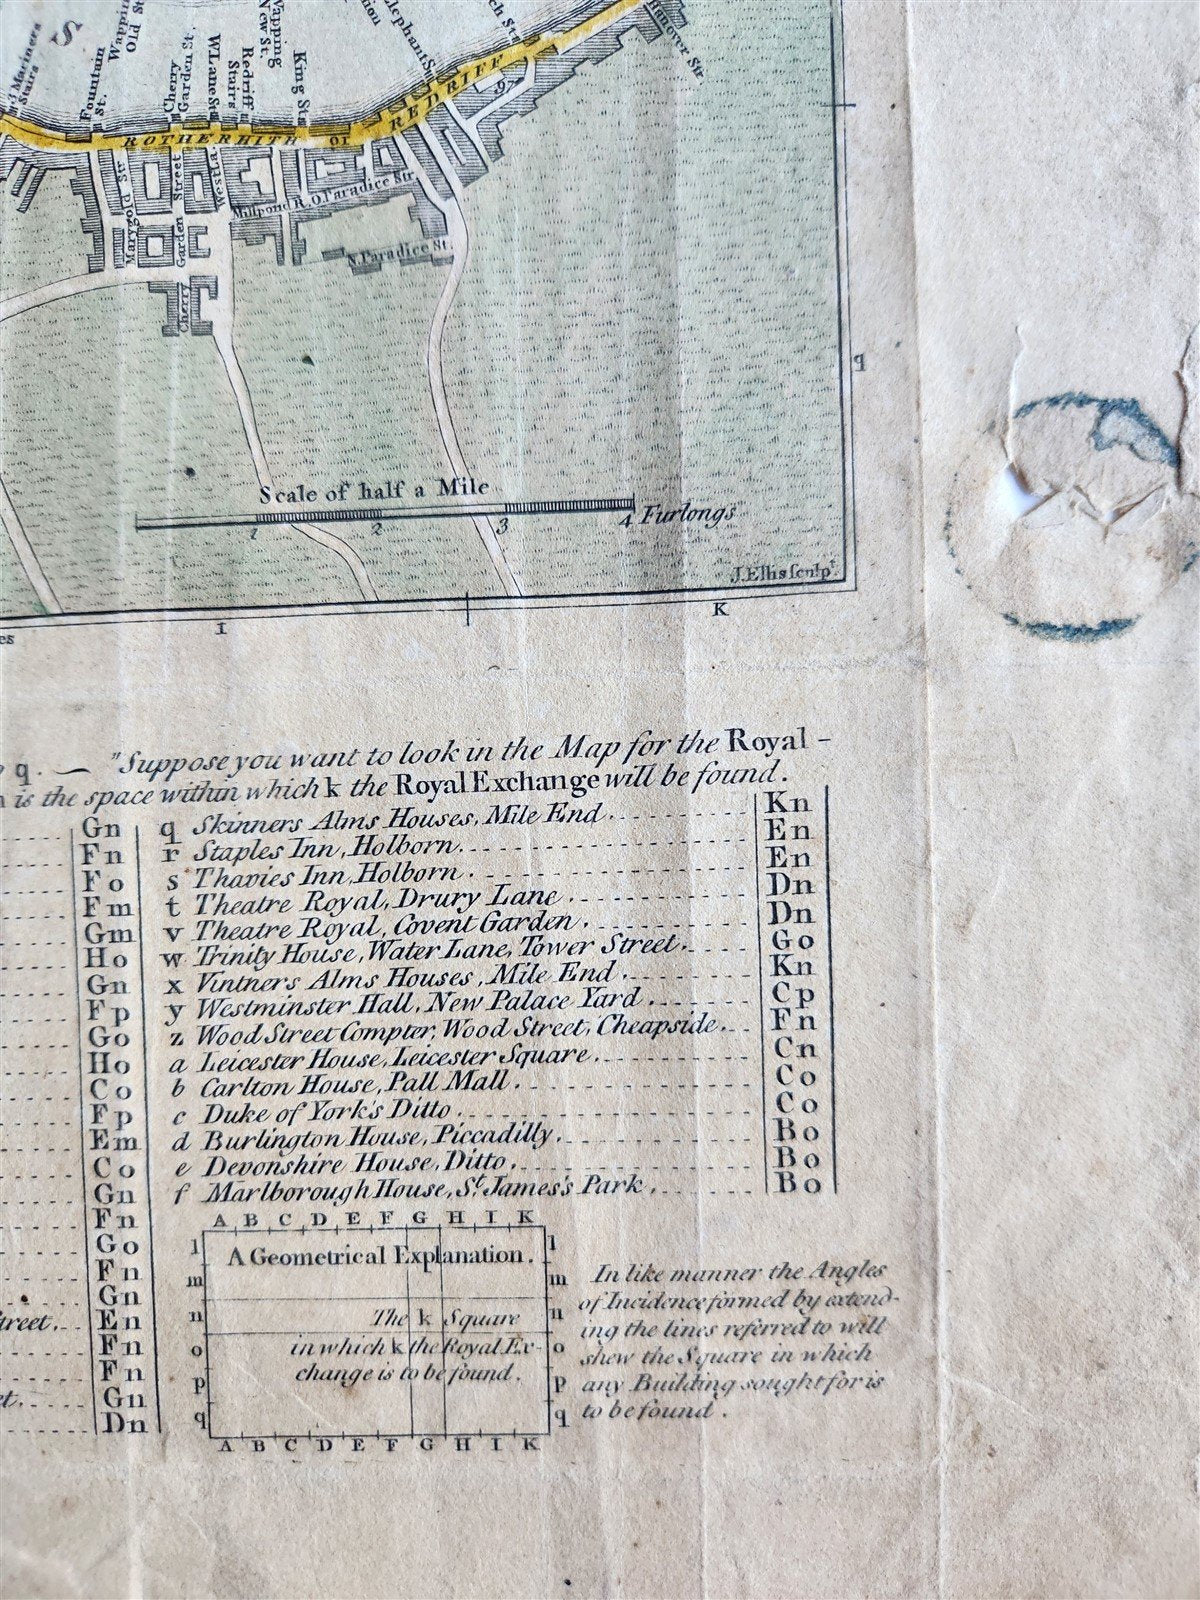 S
Mariners
Stairs
Fountain
St.
Wapping
Old St.
Cherry
Garden St.
W. Lane St.
Redriff
Stairs
Wapping
New St.
King St.
Elephant S.
Hanover Str.
ROTHERHITH
REDRIFF
97
Marygold Str.
Garden Street
Cherry
West La.
Millpond R. O. Paradice Str.
N. Paradice St.
q
Scale of half a Mile
1 2 3 4 Furlongs
J. Ellis sculpt.
I K
q. — "Suppose you want to look in the Map for the Royal -
is the space within which k the Royal Exchange will be found.
Gn
Fn
Fo
Fm
Gm
Ho
Gn
Fp
Go
Ho
Co
Fp
Em
Co
Gn
Fn
Go
Fn
Gn
En
Fn
Fn
Gn
Dn
q Skinners Alms Houses, Mile End Kn
r Staples Inn, Holborn. En
s Thavies Inn, Holborn. En
t Theatre Royal, Drury Lane Dn
v Theatre Royal, Covent Garden Dn
w Trinity House, Water Lane, Tower Street. Go
x Vintners Alms Houses, Mile End Kn
y Westminster Hall, New Palace Yard Cp
z Wood Street Compter, Wood Street, Cheapside. Fn
a Leicester House, Leicester Square Cn
b Carlton House, Pall Mall Co
c Duke of York's Ditto Co
d Burlington House, Piccadilly. Bo
e Devonshire House, Ditto. Bo
f Marlborough House, St. James's Park Bo
A B C D E F G H I K
l
m
n
o
p
q
A Geometrical Explanation.
The k Square
in which k the Royal Ex-
change is to be found.
l
m
n
o
p
q
A B C D E F G H I K
In like manner the Angles
of Incidence formed by extend-
ing the lines referred to will
shew the Square in which
any Building sought for is
to be found.